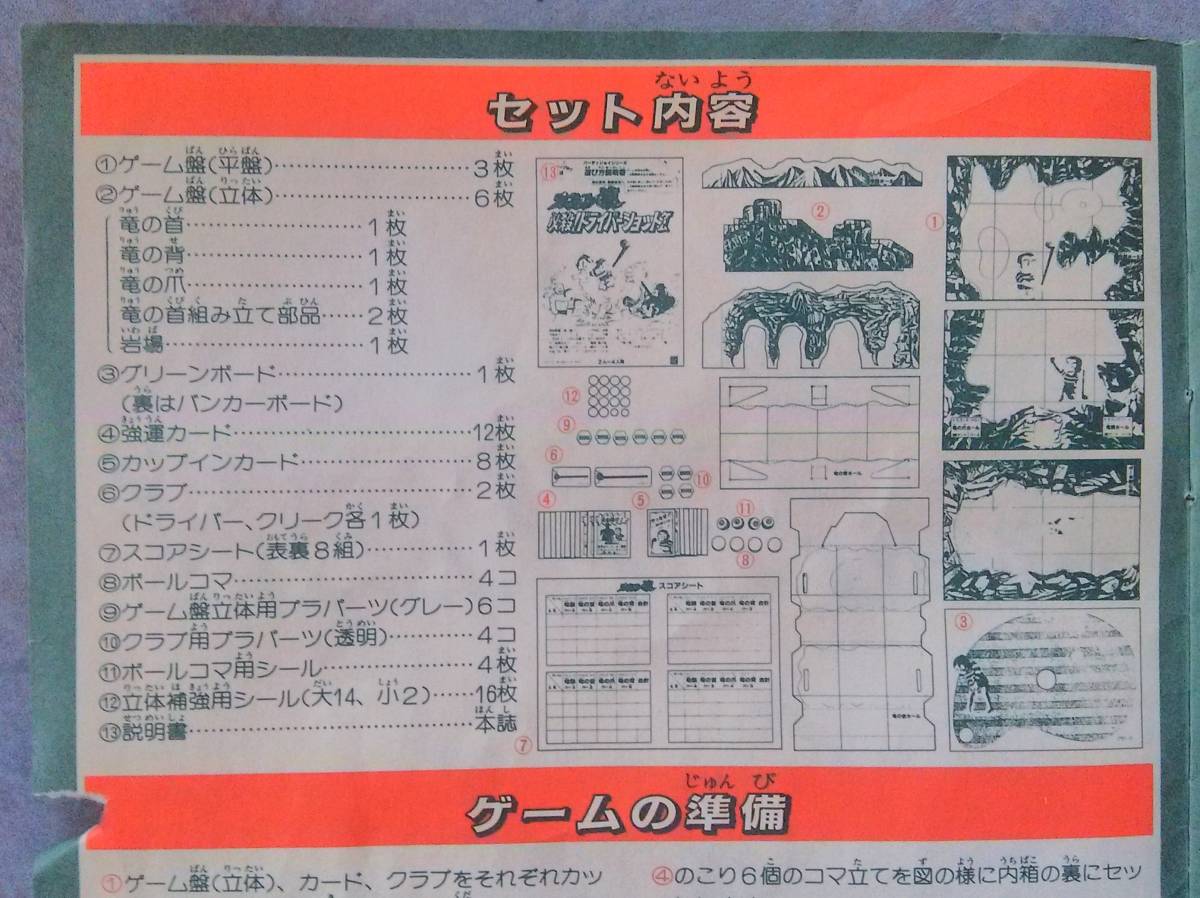 セット内容
①ゲーム盤(平盤)……3枚
②ゲーム盤(立体)……6枚
竜の首……1枚
竜の背……1枚
竜の爪……1枚
竜の首組み立て部品……2枚
岩場……1枚
③グリーンボード……1枚
(裏はバンカーボード)
④強運カード……12枚
⑤カップインカード……8枚
⑥クラブ……2枚
(ドライバー、クリーク各1枚)
⑦スコアシート(表裏8組)……1枚
⑧ボールコマ……4コ
⑨ゲーム盤立体用プラパーツ(グレー)6コ
⑩クラブ用プラパーツ(透明)……4コ
⑪ボールコマ用シール……4枚
⑫立体補強用シール(大14、小2)……16枚
⑬説明書……本誌
⑬
遊び方説明書
ドライバーショット
②
①
⑫
⑨
⑥
⑩
④
⑤
⑪
⑧
スコアシート
⑦
③
ゲームの準備
①ゲーム盤(立体)、カード、クラブをそれぞれカッ
④のこり6個のコマ立てを図の様に内箱の裏にセッ